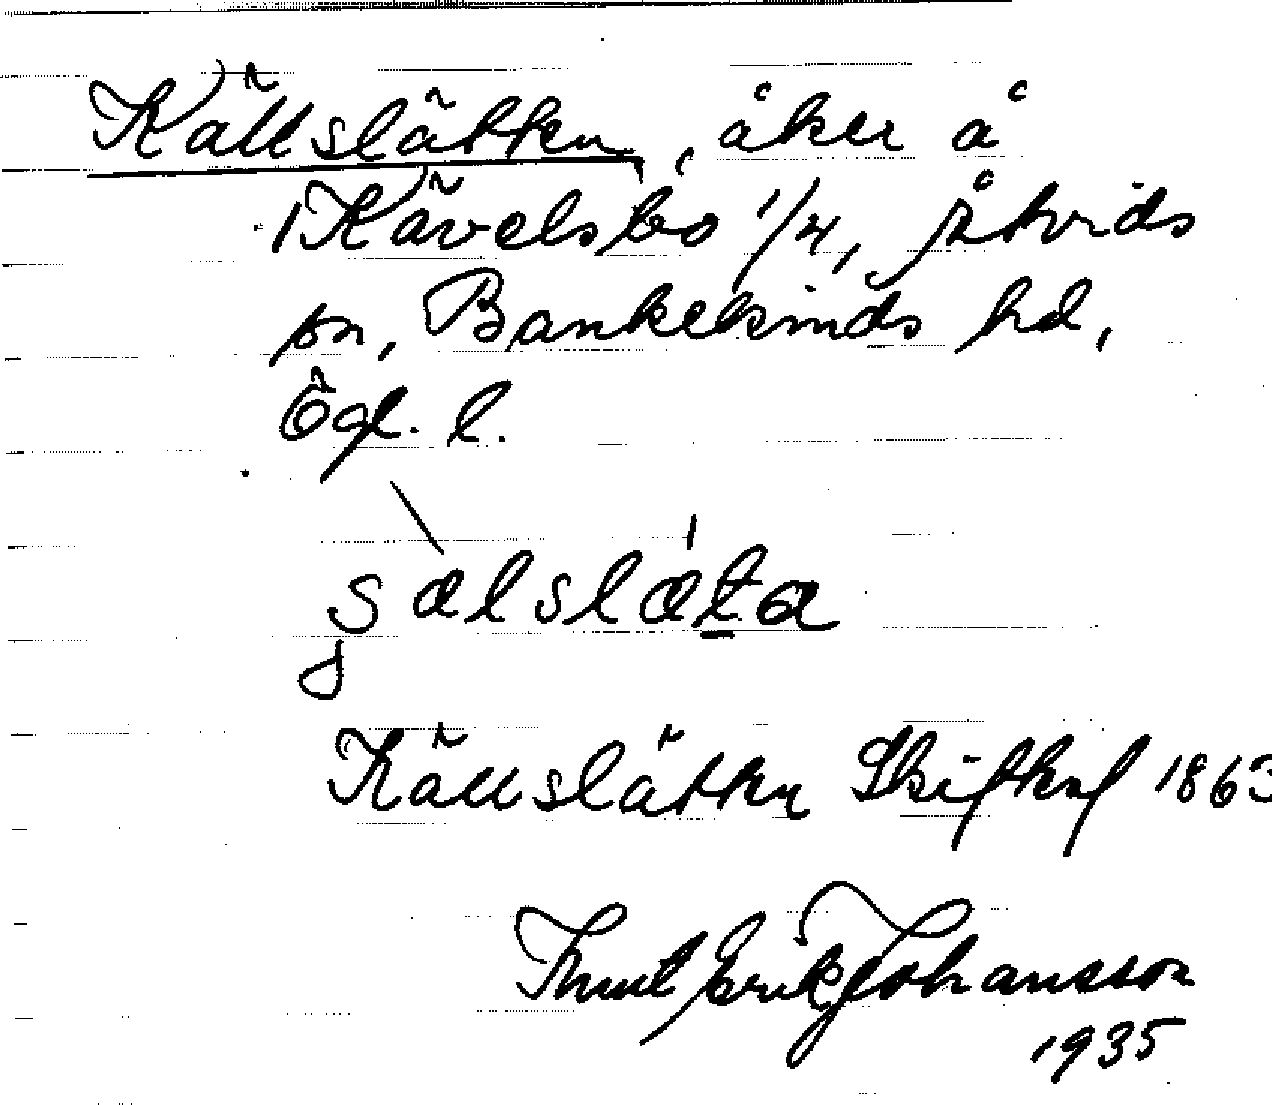 Källslätten, åker å
Kävelsbo 1/4, Åtvids
sn, Bankekinds hd,
Ögl. l.
sælslæta
Källslätten Skifteaf 1863
Knut Erik Johansson
1935